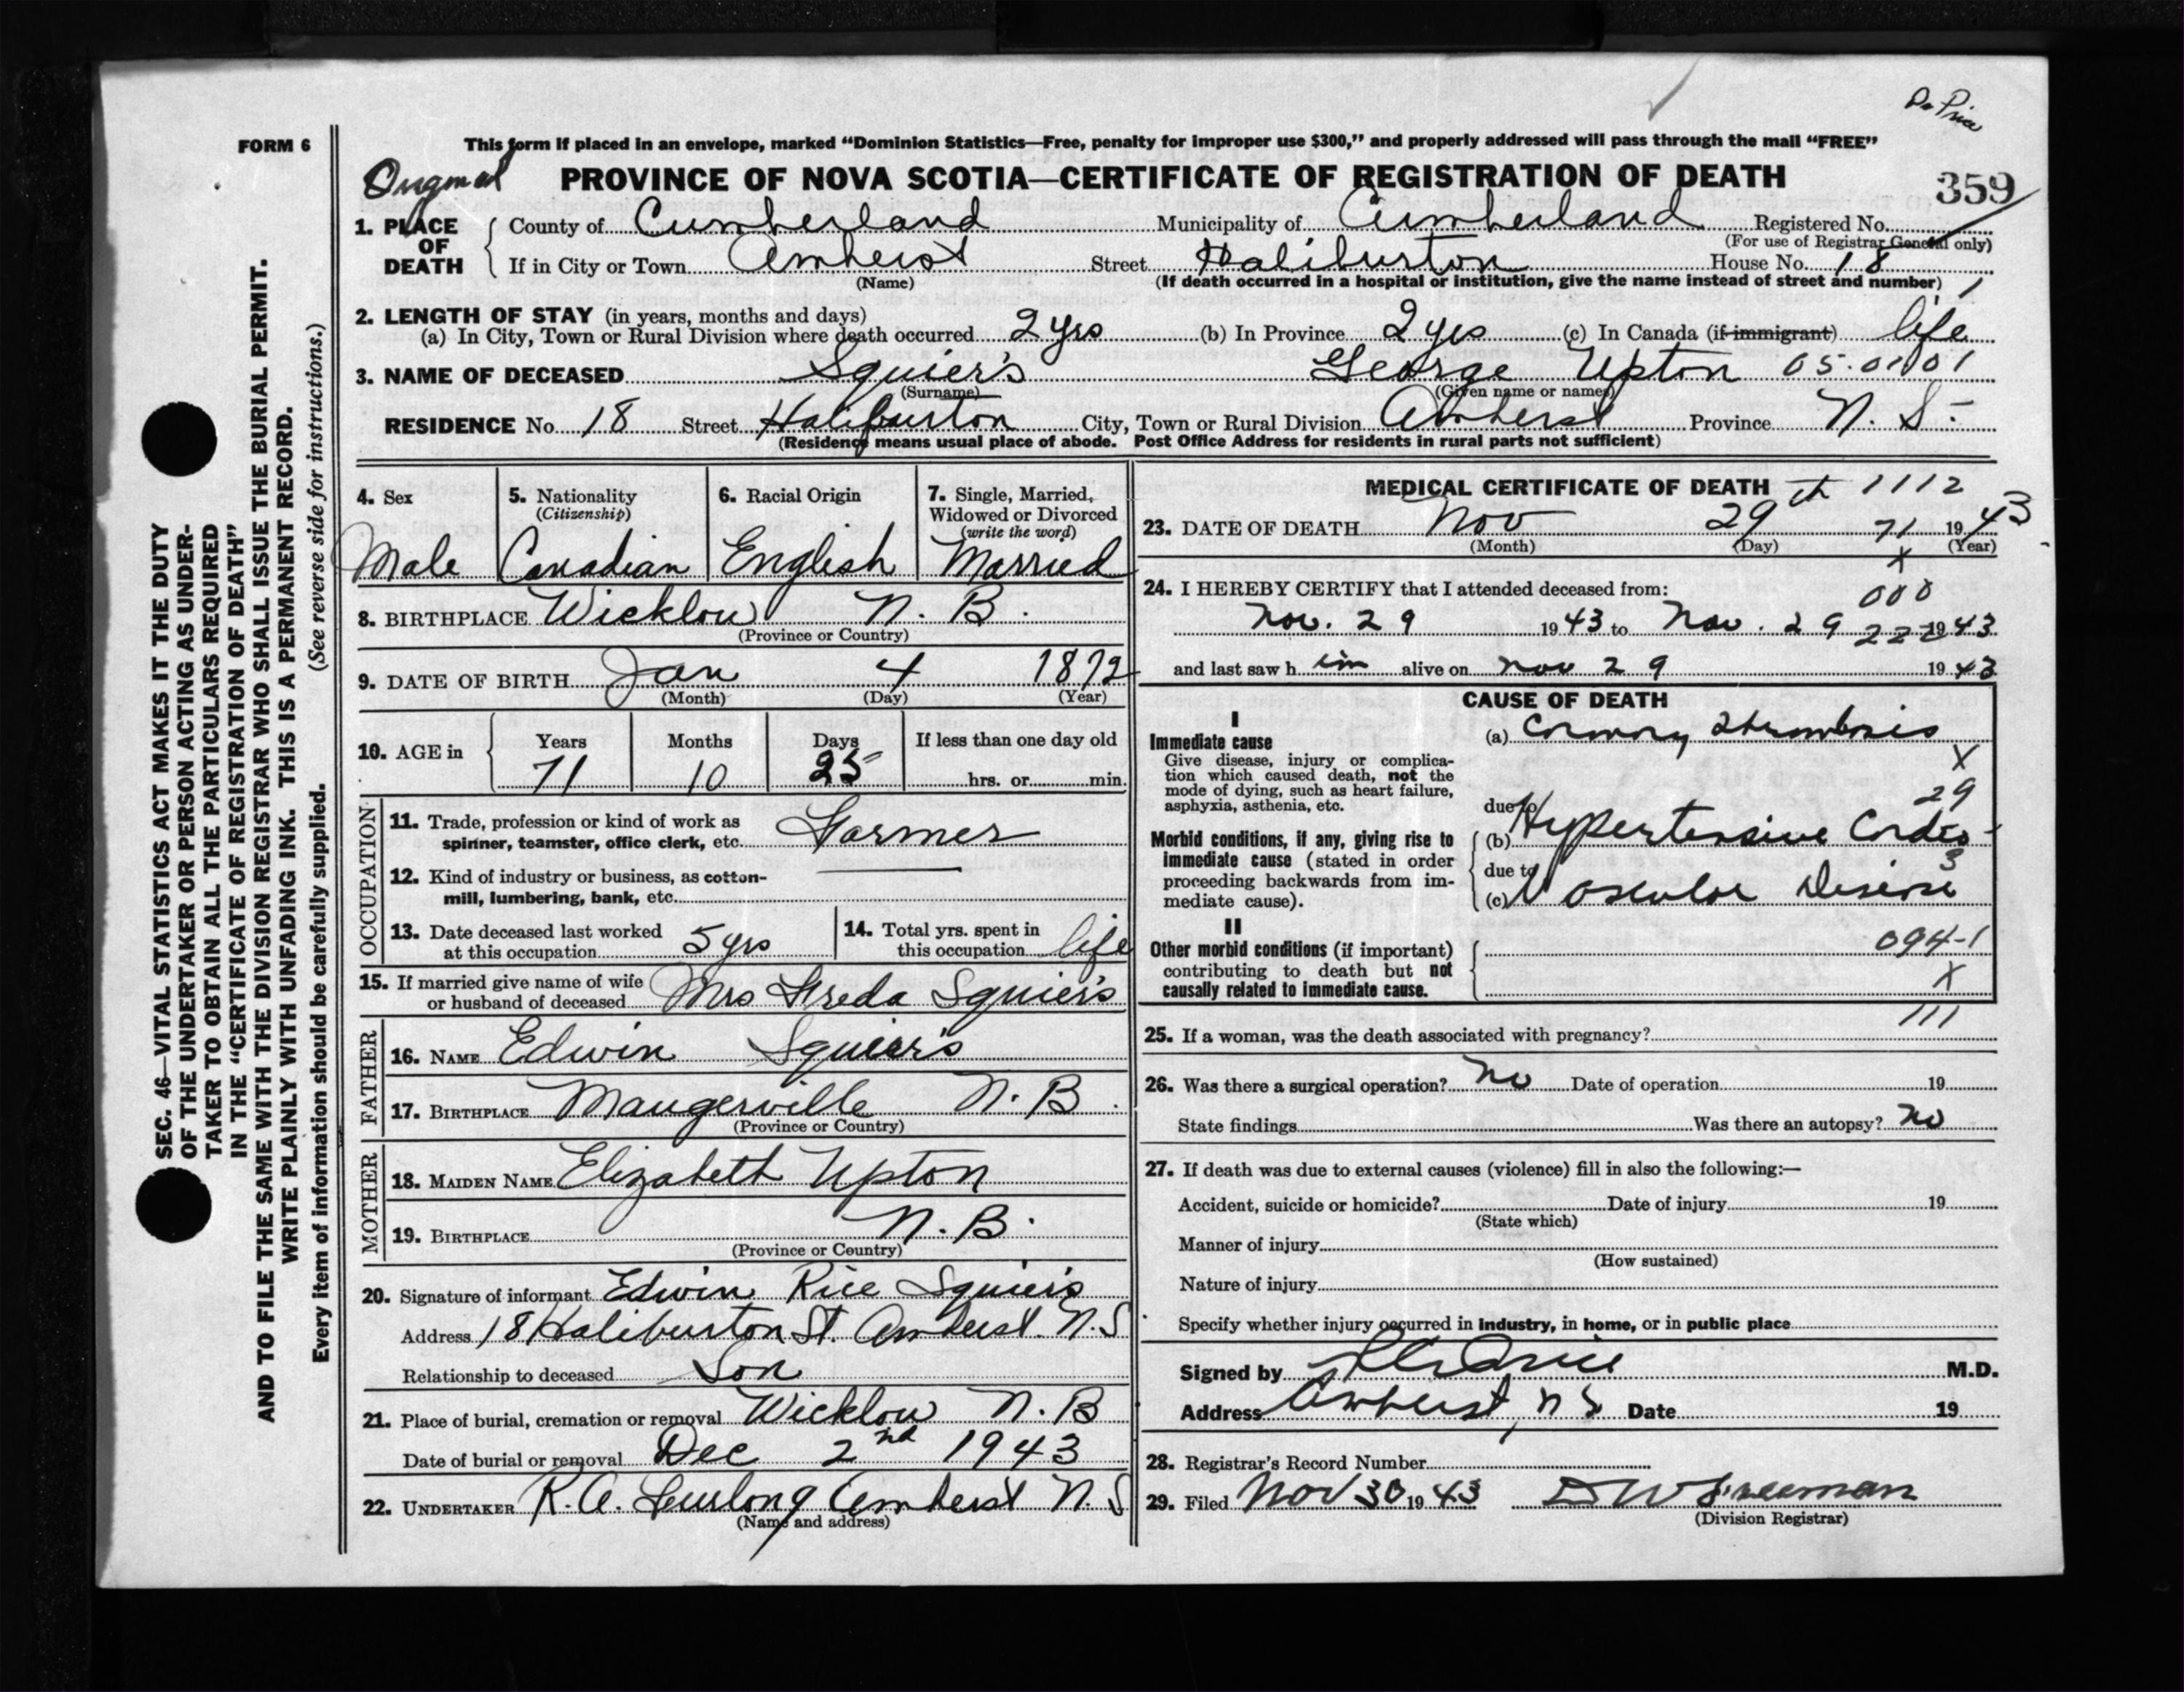 Dr Price
FORM 6
This form if placed in an envelope, marked “Dominion Statistics—Free, penalty for improper use $300,” and properly addressed will pass through the mail “FREE”
Original PROVINCE OF NOVA SCOTIA—CERTIFICATE OF REGISTRATION OF DEATH 359
1. PLACE OF DEATH { County of Cumberland Municipality of Cumberland Registered No.
(For use of Registrar General only)
If in City or Town Amherst Street Haliburton House No. 18
(Name) (If death occurred in a hospital or institution, give the name instead of street and number) 1
2. LENGTH OF STAY (in years, months and days)
(a) In City, Town or Rural Division where death occurred 2 yrs (b) In Province 2 yrs (c) In Canada (if immigrant) life
3. NAME OF DECEASED Squiers George Upton 05.01101
(Surname) (Given name or names)
RESIDENCE No. 18 Street Haliburton City, Town or Rural Division Amherst Province N. S.
(Residence means usual place of abode. Post Office Address for residents in rural parts not sufficient)
4. Sex 5. Nationality (Citizenship) 6. Racial Origin 7. Single, Married, Widowed or Divorced (write the word)
Male Canadian English Married
8. BIRTHPLACE Wicklow N. B.
(Province or Country)
9. DATE OF BIRTH Jan 4 1872
(Month) (Day) (Year)
10. AGE in { Years Months Days If less than one day old
71 10 25 hrs. or min.
OCCUPATION
11. Trade, profession or kind of work as
spinner, teamster, office clerk, etc. Farmer
12. Kind of industry or business, as cotton-
mill, lumbering, bank, etc.
13. Date deceased last worked
at this occupation 5 yrs
14. Total yrs. spent in
this occupation life
15. If married give name of wife
or husband of deceased Mrs Freda Squiers
FATHER
16. NAME Edwin Squiers
17. BIRTHPLACE Maugerville N. B.
(Province or Country)
MOTHER
18. MAIDEN NAME Elizabeth Upton
19. BIRTHPLACE N. B.
(Province or Country)
20. Signature of informant Edwin Rice Squiers
Address 18 Haliburton St. Amherst. N. S
Relationship to deceased Son
21. Place of burial, cremation or removal Wicklow N. B
Date of burial or removal Dec 2nd 1943
22. UNDERTAKER R. A. Furlong Amherst N. S
(Name and address)
MEDICAL CERTIFICATE OF DEATH 1112
23. DATE OF DEATH Nov 29th 71 1943
(Month) (Day) (Year)
x
24. I HEREBY CERTIFY that I attended deceased from:
000
Nov. 29 1943 to Nov. 29 222 1943
and last saw him alive on Nov 29 1943
CAUSE OF DEATH
I
Immediate cause
Give disease, injury or complica-
tion which caused death, not the
mode of dying, such as heart failure,
asphyxia, asthenia, etc.
(a) Coronary Thrombosis
X
29
due to
Morbid conditions, if any, giving rise to
immediate cause (stated in order
proceeding backwards from im-
mediate cause).
(b) Hypertensive Cardio-
3
due to
(c) Vascular Disease
II
Other morbid conditions (if important)
contributing to death but not
causally related to immediate cause.
094-1
X
111
25. If a woman, was the death associated with pregnancy?
26. Was there a surgical operation? No Date of operation 19
State findings Was there an autopsy? No
27. If death was due to external causes (violence) fill in also the following:—
Accident, suicide or homicide? Date of injury 19
(State which)
Manner of injury
(How sustained)
Nature of injury
Specify whether injury occurred in industry, in home, or in public place
Signed by Price M.D.
Address Amherst, N S Date 19
28. Registrar's Record Number
29. Filed Nov 30 1943 D W Freeman
(Division Registrar)
SEC. 46—VITAL STATISTICS ACT MAKES IT THE DUTY
OF THE UNDERTAKER OR PERSON ACTING AS UNDER-
TAKER TO OBTAIN ALL THE PARTICULARS REQUIRED
IN THE “CERTIFICATE OF REGISTRATION OF DEATH”
AND TO FILE THE SAME WITH THE DIVISION REGISTRAR WHO SHALL ISSUE THE BURIAL PERMIT.
WRITE PLAINLY WITH UNFADING INK. THIS IS A PERMANENT RECORD.
Every item of information should be carefully supplied. (See reverse side for instructions.)